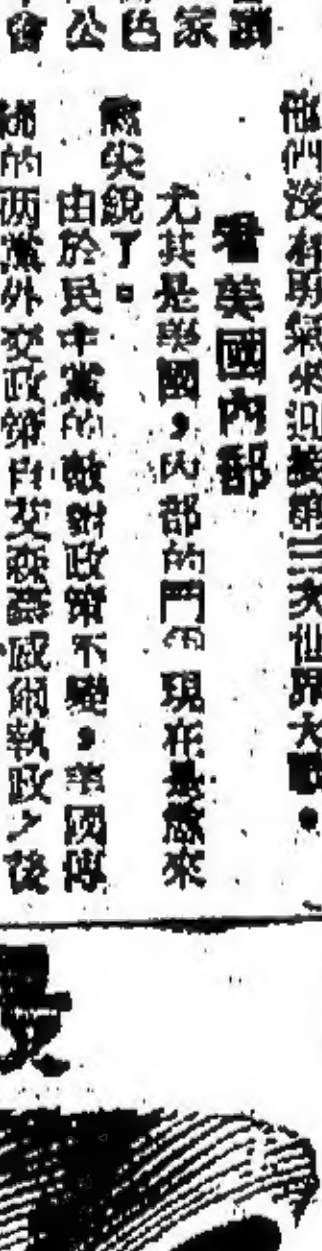 劉
家
色
公
會
他們沒有勇氣來迎接第三次世界大戰。
看美國內部
尤其是美國,內部的鬥爭現在是愈來
愈尖銳了。
由於民主黨的敵對政策不變,美國傳
統的两黨外交政策自艾森豪威爾執政之後
長